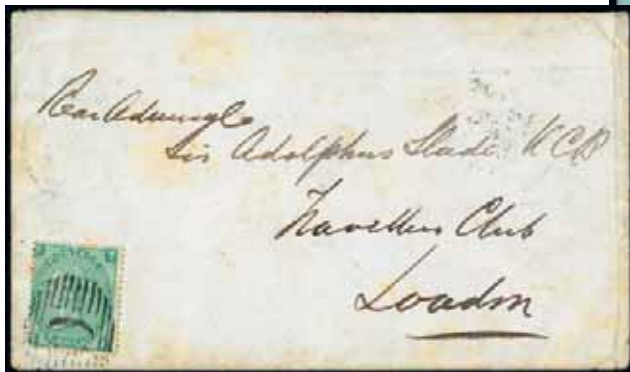 Rear Admiral
Sir Adolphus Slade KCB
Travellers Club
London